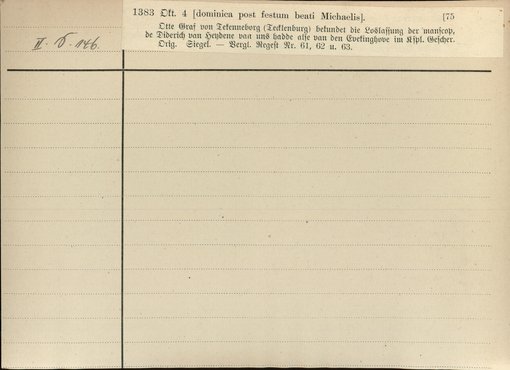 1383 Okt. 4 [dominica post festum beati Michaelis]. [75
Otte Graf von Tekenneborg (Tecklenburg) bekundet die Loslassung der manscop,
de Diderich van Heydene van uns hadde alse van den Evekinghove im Kspl. Gescher.
Orig. Siegel. — Vergl. Regest Nr. 61, 62 u. 63.
II. 146.